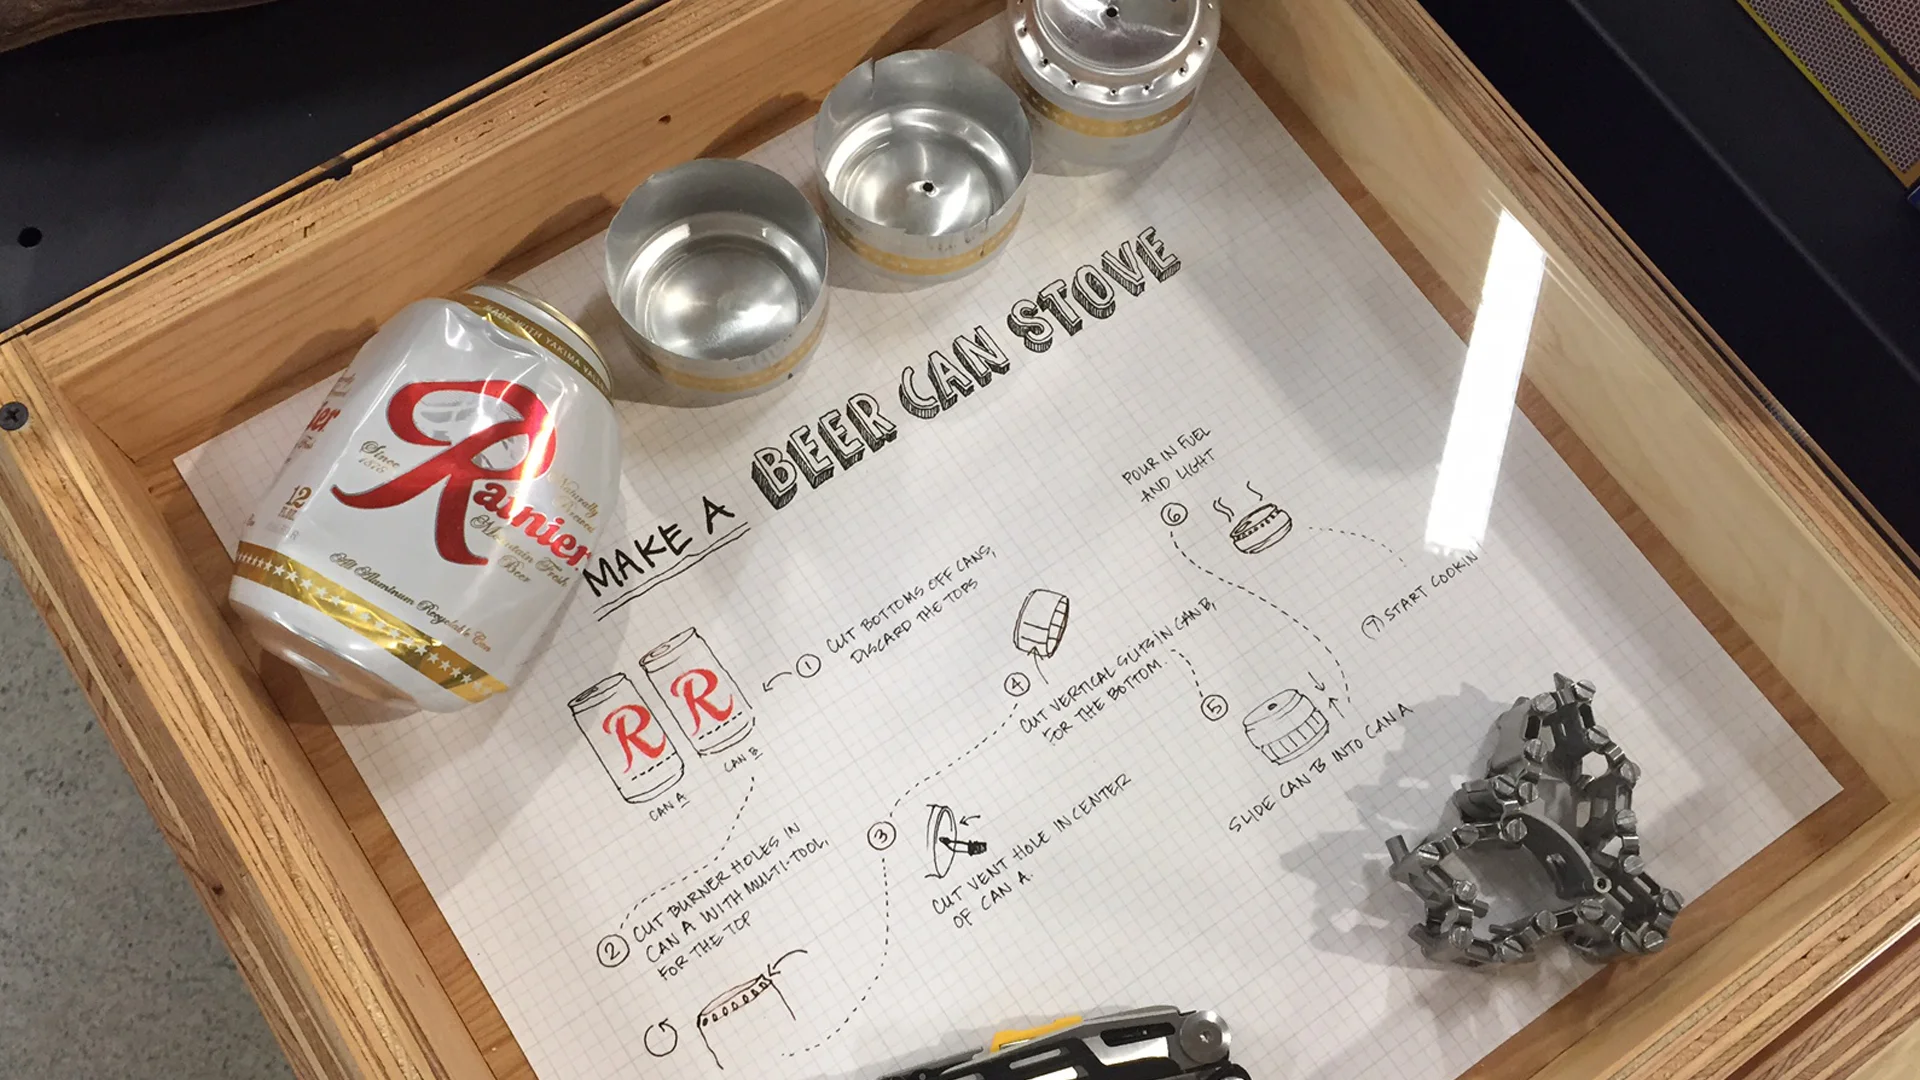 MADE WITH YAKIMA VALLEY
Since
1878
Rainier
Naturally
Brewed
Mountain Fresh
Beer
12
All Aluminum Recyclable Can
MAKE A BEER CAN STOVE
R
R
CAN A
CAN B
1 CUT BOTTOMS OFF CANS,
DISCARD THE TOPS
2 CUT BURNER HOLES IN
CAN A WITH MULTI-TOOL,
FOR THE TOP
3
CUT VENT HOLE IN CENTER
OF CAN A.
4
CUT VERTICAL SLITS IN CAN B,
FOR THE BOTTOM.
5
SLIDE CAN B INTO CAN A
POUR IN FUEL
AND LIGHT
6
(7) START COOKIN